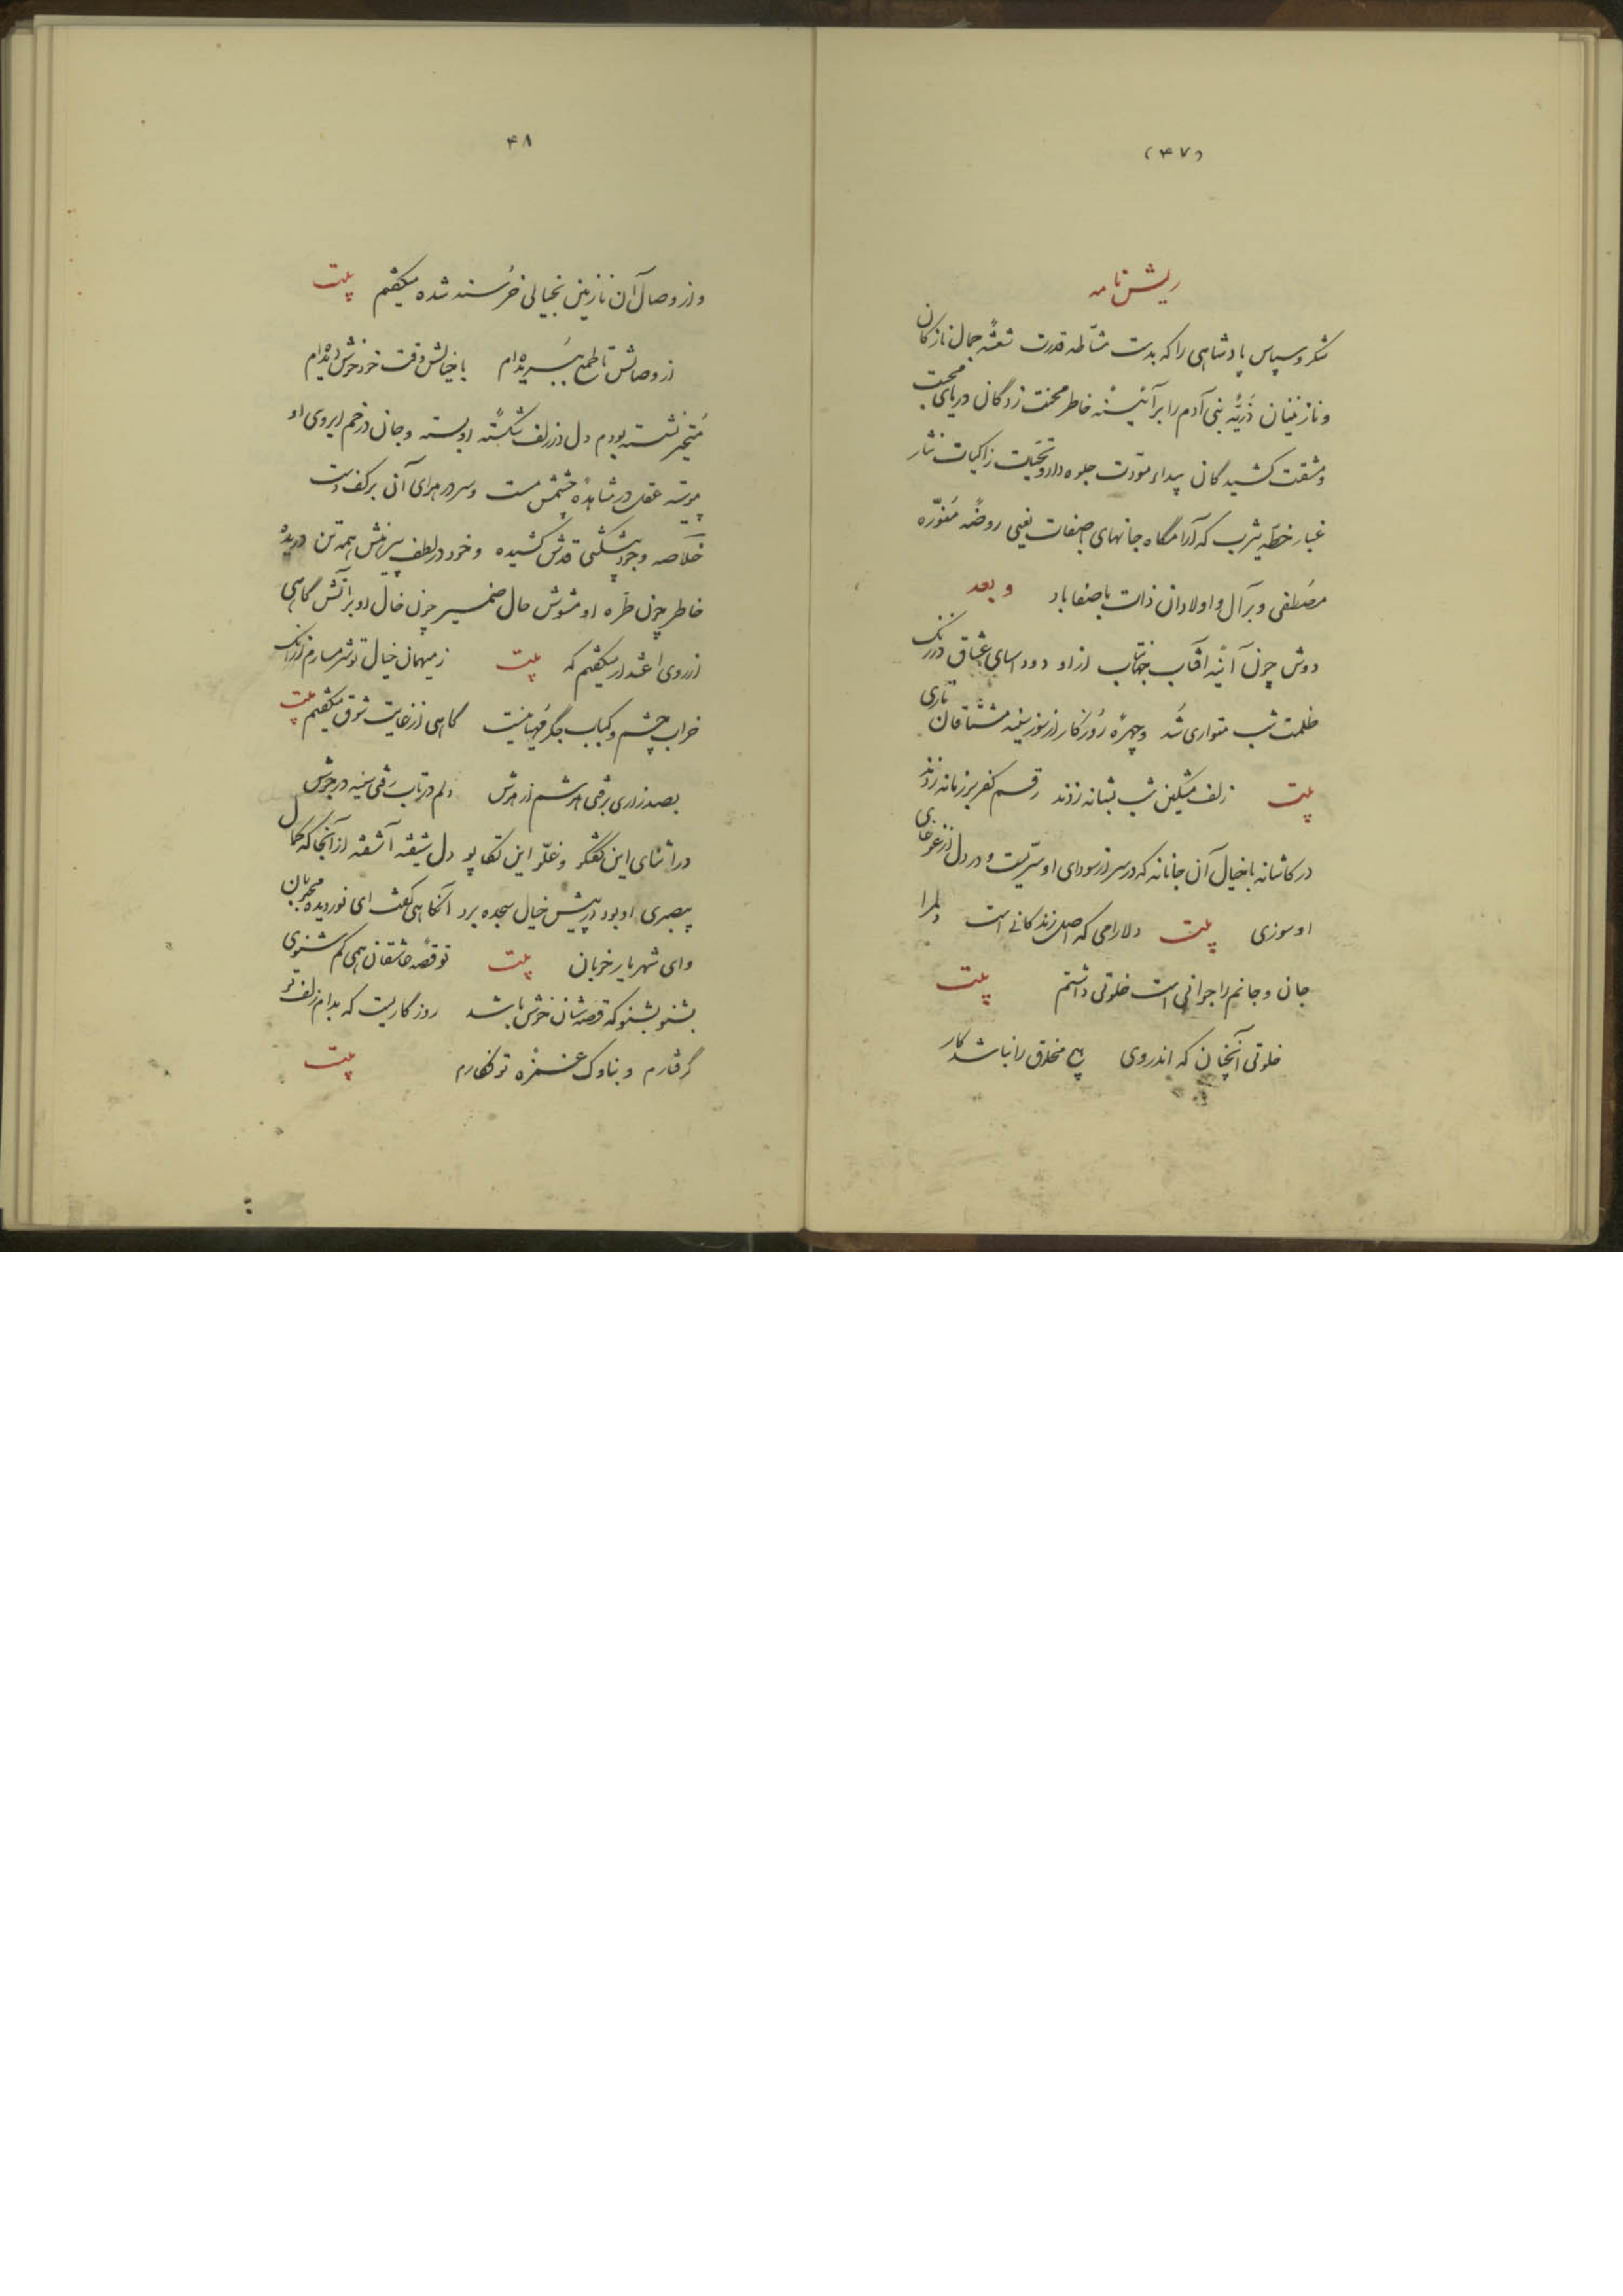 (۴۷)
ریش نامه
شکر و سپاس پادشاهی را که بدست مشاطه قدرت شعشهٔ جمال نازکان
و نازنینان ذریّه بنی آدم را بر آئینهٔ خاطر محنت زدگان دریای محبت
و مشقت کشیدگان بیداء مودّت جلوه داد و تحیّات زاکیات نثار
غبار خطّه یثرب که آرامگاه جانهای اصفیاست یعنی روضهٔ منوّره
مصطفی و بر آل و اولاد آن ذات باصفا باد و بعد
دوش چون آئینه آفتاب جهانتاب از او دود اسای عشاق در زنک
ظلمت شب متواری شد و چهرهٔ روزکار از سوز سینه مشتاقان تاری
بیت زلف مشکین شب بشانه زدند رقم کفر بر زمانه زدند
در کاشانه با خیال آن جانانه که در سر از سودای او سریست و در دل از غوغای
او سوزی بیت دلارامی که اصل زندکانی است دلمرا
جان و جانم را جوانی است خلوتی داشتم بیت
خلوتی آنچنان که اندروی هیچ مخلوق را نباشد کار
۴۸
و از وصال آن نازنین بخیالی خرسند شده میکفتم بیت
از وصالش تا طمع ببریده‌ام با خیالش وقت خود خوش دیده‌ام
متحیّر نشسته بودم دل در زلف شکستهٔ او بسته و جان در خم ابروی او
پیوسته عقل در مشاهدهٔ چشمش مست و سر در هوای آن بر کف دست
خلاصه وجود پیشکش قدش کشیده و خرد در لطف پیرهنش همه تن دیده
خاطر چون طرّه او مشوش حال ضمیر چون خال او بر آتش گاهی
از روی اعتذار میکفتم که بیت ز میهمان خیال تو شرمسارم از آنک
خراب چشم و کباب جگر مهیا نیست گاهی از غایت شوق میکفتم بیت
بصد زاری برفی هوشم از هوش دلم در تاب رفی سینه در جوش
در اثنای این گفتگو و غلوّ این تکاپو دل شیفته آشفته از آنجا که کمال
بیصبری او بود در پیش خیال سجده برد آنکاهی گفت ای نور دیده محبوبان
و ای شهریار خوبان بیت تو قصهٔ عاشقان همی کم شنوی
بشنو بشنو که قصه‌شان خوش باشد روزگاریست که بدام زلف تو
گرفتارم و بناوک غمزهٔ تو فکارم بیت